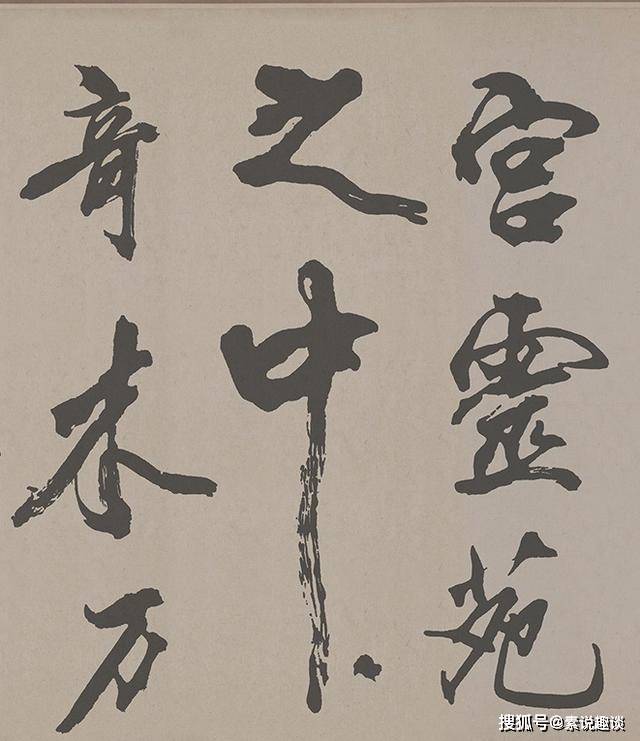 宫靈苑
之中
奇木万
搜狐号@素说趣谈